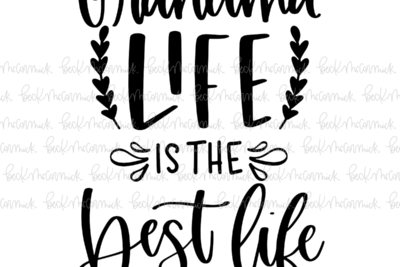 Grandma
LIFE
IS THE
best life